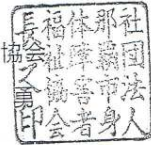 社団法人
那覇市身
体障害者
福祉協会
長之印
協会